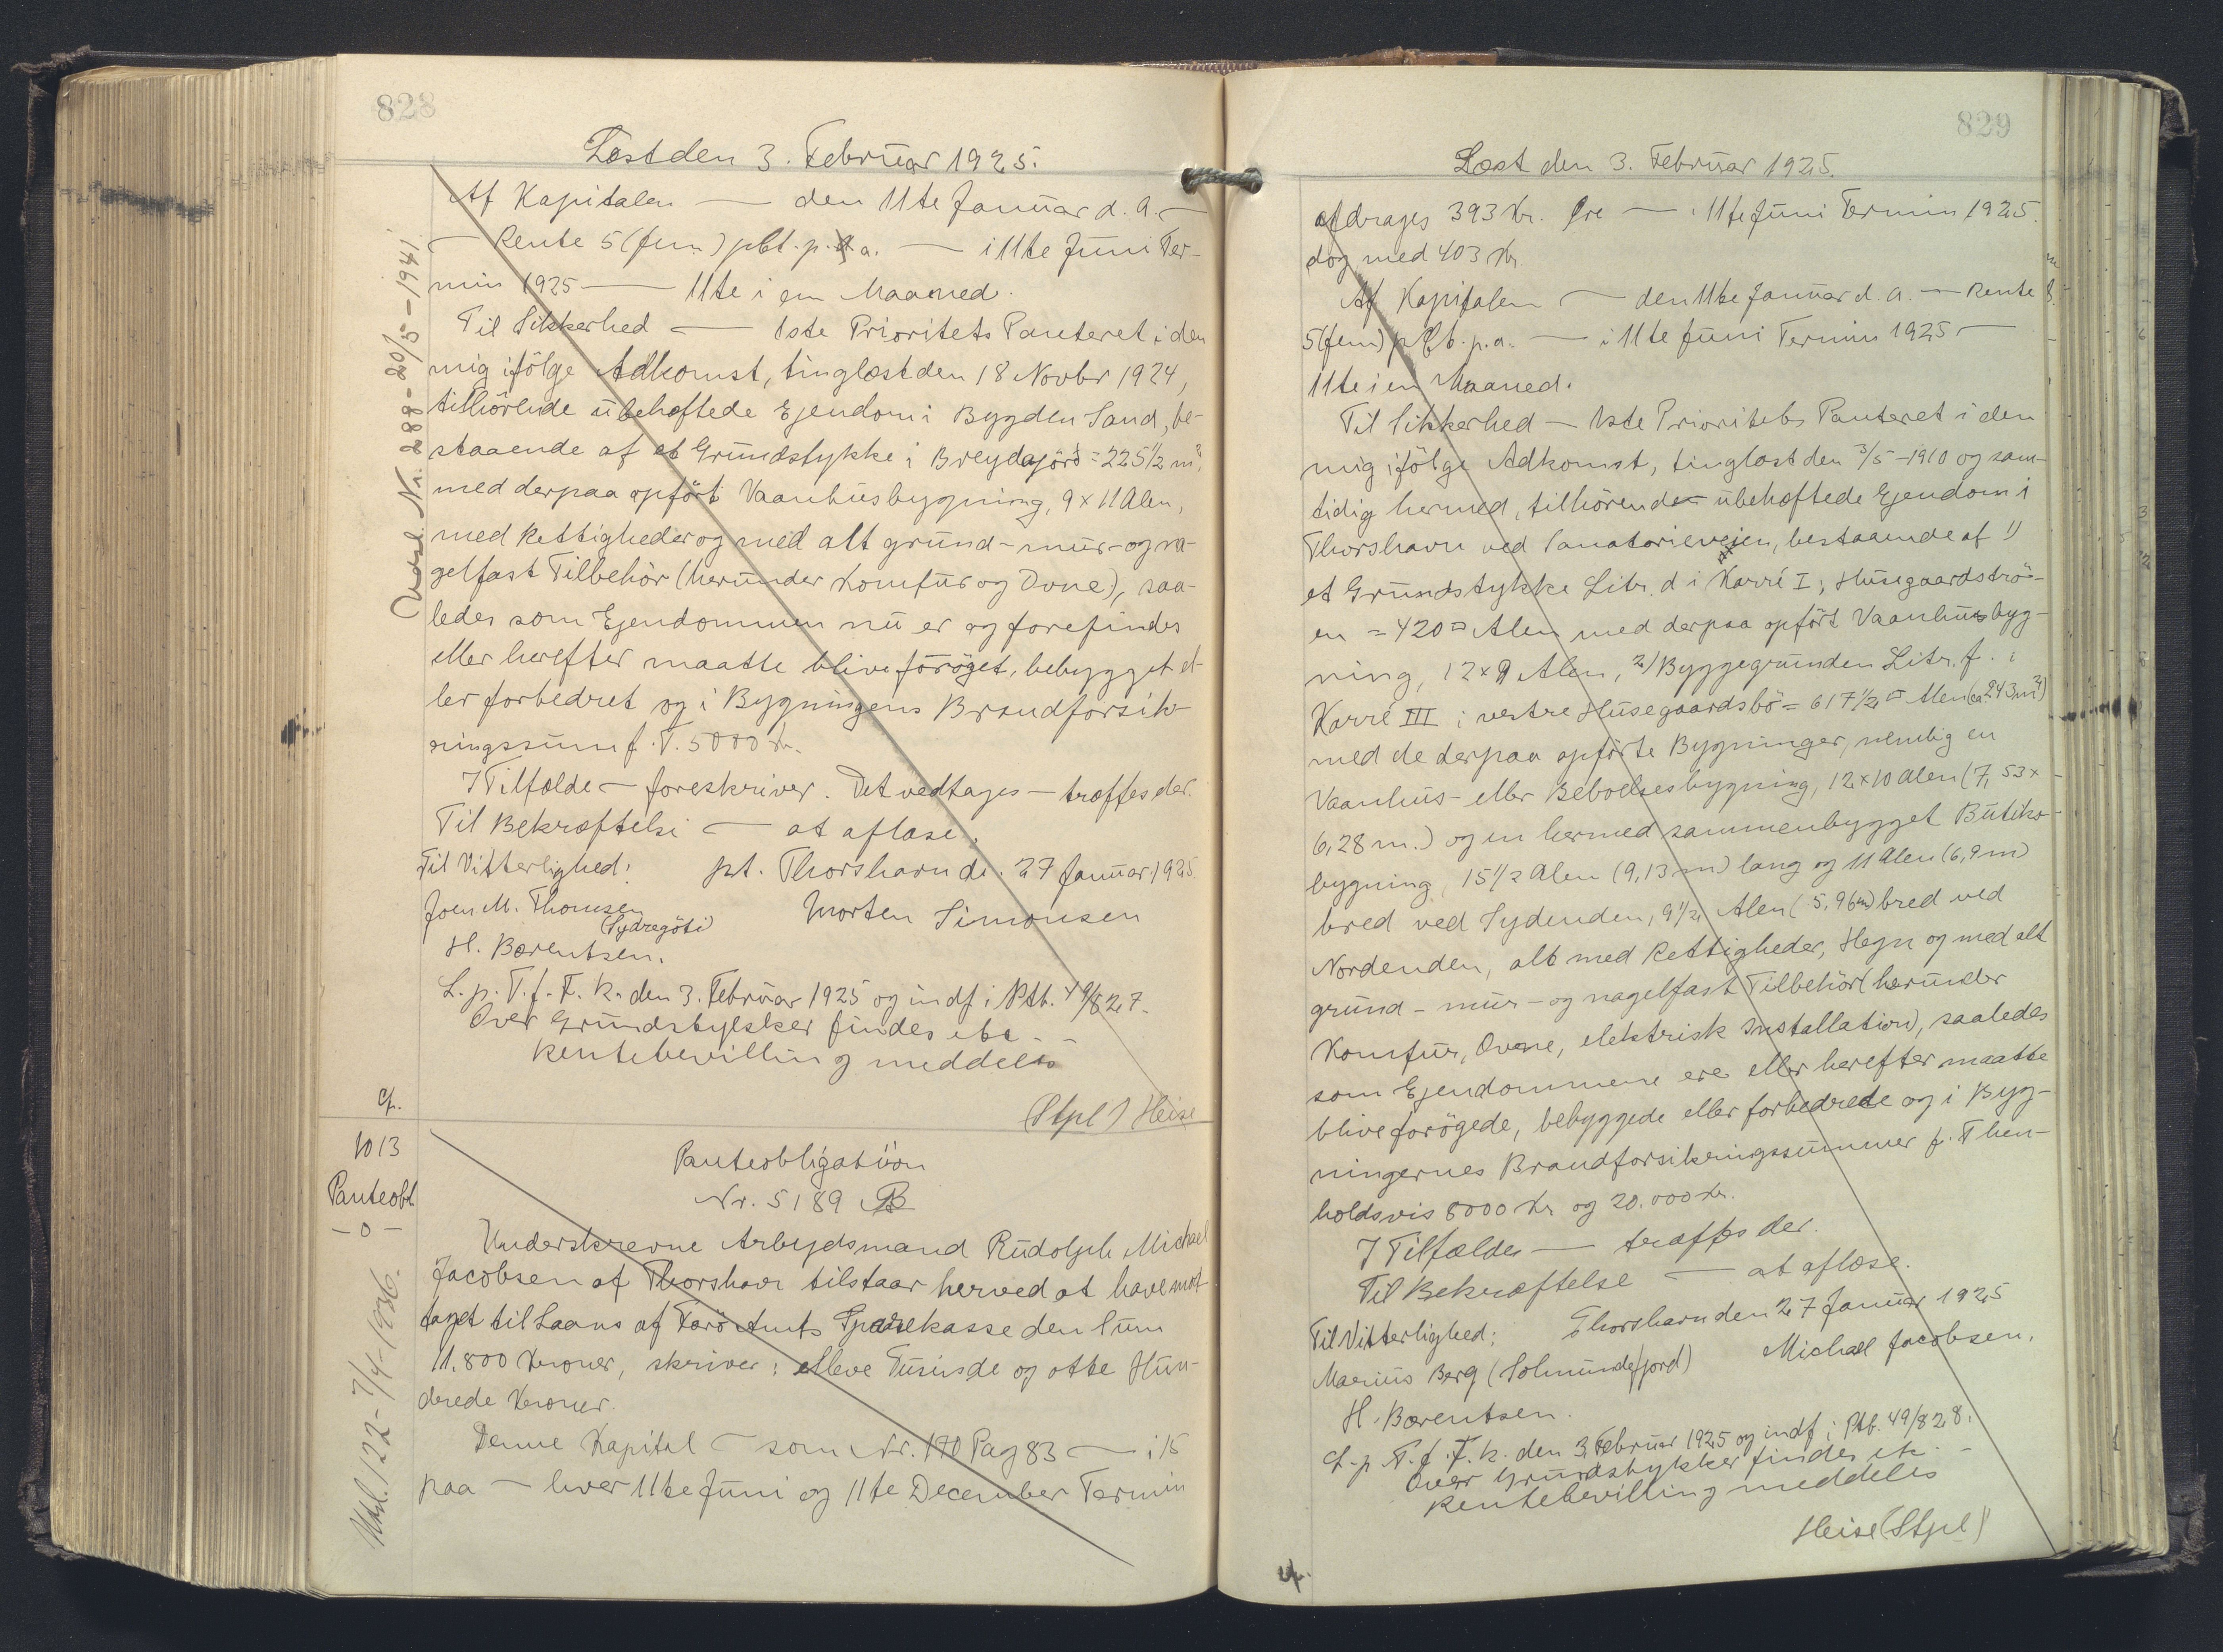 828
Læst den 3. Februar 1925.
Af Kapitalen — den 11te Januar d. A. —
— Rente 5 (fem) pCt. p. a. — i 11te Juni Ter-
min 1925 — 11te i en Maaned.
Til Sikkerhed — 1ste Prioritets Panteret i den
mig ifölge Adkomst, tinglæst den 18 Novbr 1924,
tilhörende übehæftede Ejendom i Bygden Sand, be-
staaende af et Grundstykke i Breydagjörd = 225 1/2 m²,
med derpaa opfört Vaanhusbygning, 9 x 11 Alen,
med Rettigheder og med alt grund- mur- og na-
gelfast Tilbehör (herunder Komfur og Ovne), saa-
ledes som Ejendommen nu er og forefindes
eller herefter maatte blive foröget, bebygget el-
ler forbedret og i Bygningens Brandforsik-
ringssum f. T. 5000 Kr.
I Tilfælde — foreskriver. Det vedtages — træffes der.
Til Bekræftelse — at aflæse.
Til Vitterlighed: pt. Thorshavn d. 27 Januar 1925
Joen M. Thomsen
(Sydregöti)
Morten Simonsen
H. Bærentsen.
L. p. T. f. F. k. den 3. Februar 1925 og indf i Ptb. 49/827.
Over Grundstykker findes etc. —
Rentebevilling meddeles
(Stpl) Heise
Udsl. Nr. 288 - 20/5 - 1941.
cf.
1013
Panteobl
- 0 -
Udsl. 122 - 7/4 - 1936.
Panteobligation
Nr. 5189 B
Underskrevne Arbejdsmand Rudolph Michael
Jacobsen af Thorshavn tilstaar herved at have mot-
taget til Laans af Færö Amts Sparekasse den Sum
11.800 Kroner, skriver: elleve Tusinde og otte Hun-
drede Kroner.
Denne Kapital — som Nr. 170 Pag 83 — i 15
paa — hver 11te Juni og 11te December Termin
829
Læst den 3. Februar 1925.
afdrages 393 Kr. Öre — i 11te Juni Termin 1925.
dog med 403 Kr.
Af Kapitalen — den 11te Januar d. A. — Rente
5 (fem) pCt. p. a. — i 11te Juni Termin 1925 —
11te i en Maaned.
Til Sikkerhed — 1ste Prioritets Panteret i den
mig ifölge Adkomst, tinglæst den 3/5 - 1910 og sam-
tidig hermed, tilhörende übehæftede Ejendom i
Thorshavn ved Sanatorieveien, bestaaende af 1)
et Grundstykke Litr. d i Karré I, Husegaardströ-
en = 420 □ Alen med derpaa opfört Vaanhusbyg-
ning, 12 x 9 Alen, 2) Byggegrunden Litr. f. i
Karré III i vestre Husegaardsbö = 617 1/2 □ Alen (ca. 243 m²)
med de derpaa opförte Bygninger, nemlig en
Vaanhus- eller Beboelsesbygning, 12 x 10 Alen (7,53 x
6,28 m.) og en hermed sammenbygget Butiks-
bygning, 15 1/2 Alen (9,13 m) lang og 11 Alen (6,9 m)
bred ved Sydenden, 9 1/2 Alen (5,96 m) bred ved
Nordenden, alt med Rettigheder, Hegn og med alt
grund- mur- og nagelfast Tilbehör (herunder
Komfur, Ovne, elektrisk Installation), saaledes
som Ejendommene ere eller herefter maatte
blive forögede, bebyggede eller forbedrede og i Byg-
ningernes Brandforsikringssummer f. T hen-
holdsvis 8000 Kr og 20.000 Kr.
I Tilfælde — træffes der.
Til Bekræftelse — at aflæse.
Til Vitterlighed: Thorshavn den 27 Januar 1925
Marius Berg (Solmundefjord) Michael Jacobsen.
H. Bærentsen.
L. p. T. f. F. k. den 3. Februar 1925 og indf i Ptb. 49/828.
Over Grundstykker findes etc. —
Rentebevilling meddeles
Heise (Stpl)
cf.